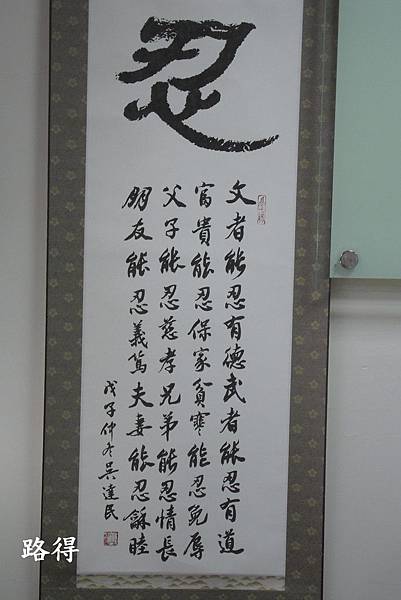 忍
文者能忍有德武者能忍有道
富貴能忍保家貧寒能忍免辱
父子能忍慈孝兄弟能忍情長
朋友能忍義篤夫妻能忍龢睦
戊子仲冬吳達民
路得